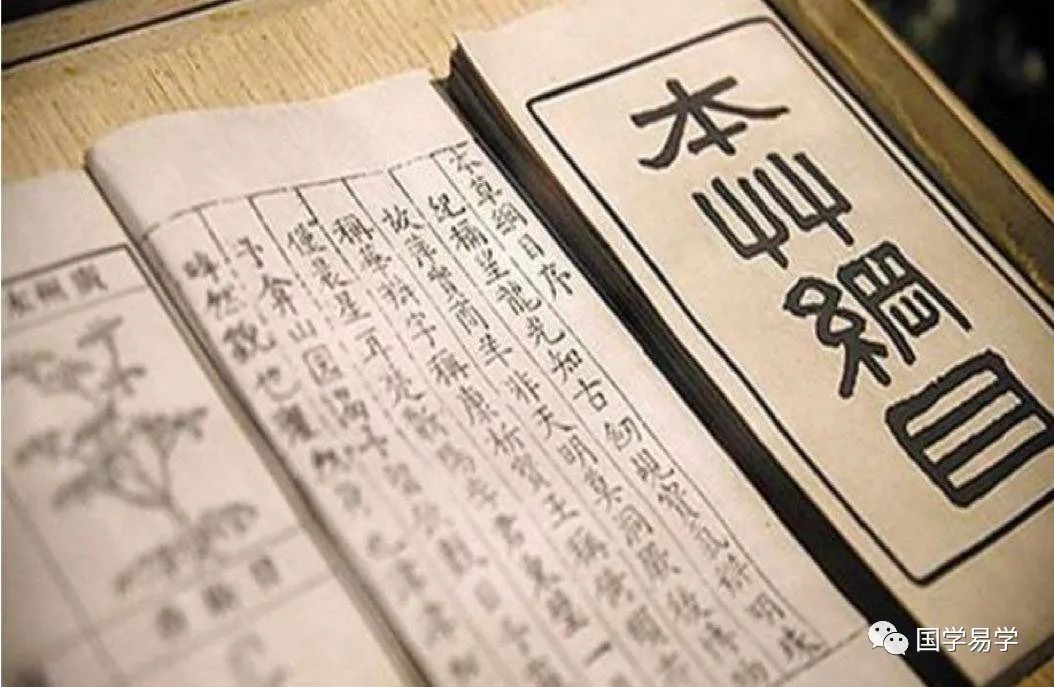 本艸綱目
本草綱目序
紀稱望龍光知古劍覘寶氣辨明珠
故萍實商羊非天明莫洞厥後博物
稱華辨字稱康析寶玉稱倚頓亦
僅晨星耳楚蘄陽李君東璧一
予弇山園謁予留飲數日予
睟然貌也癯然身也津津
国学易学